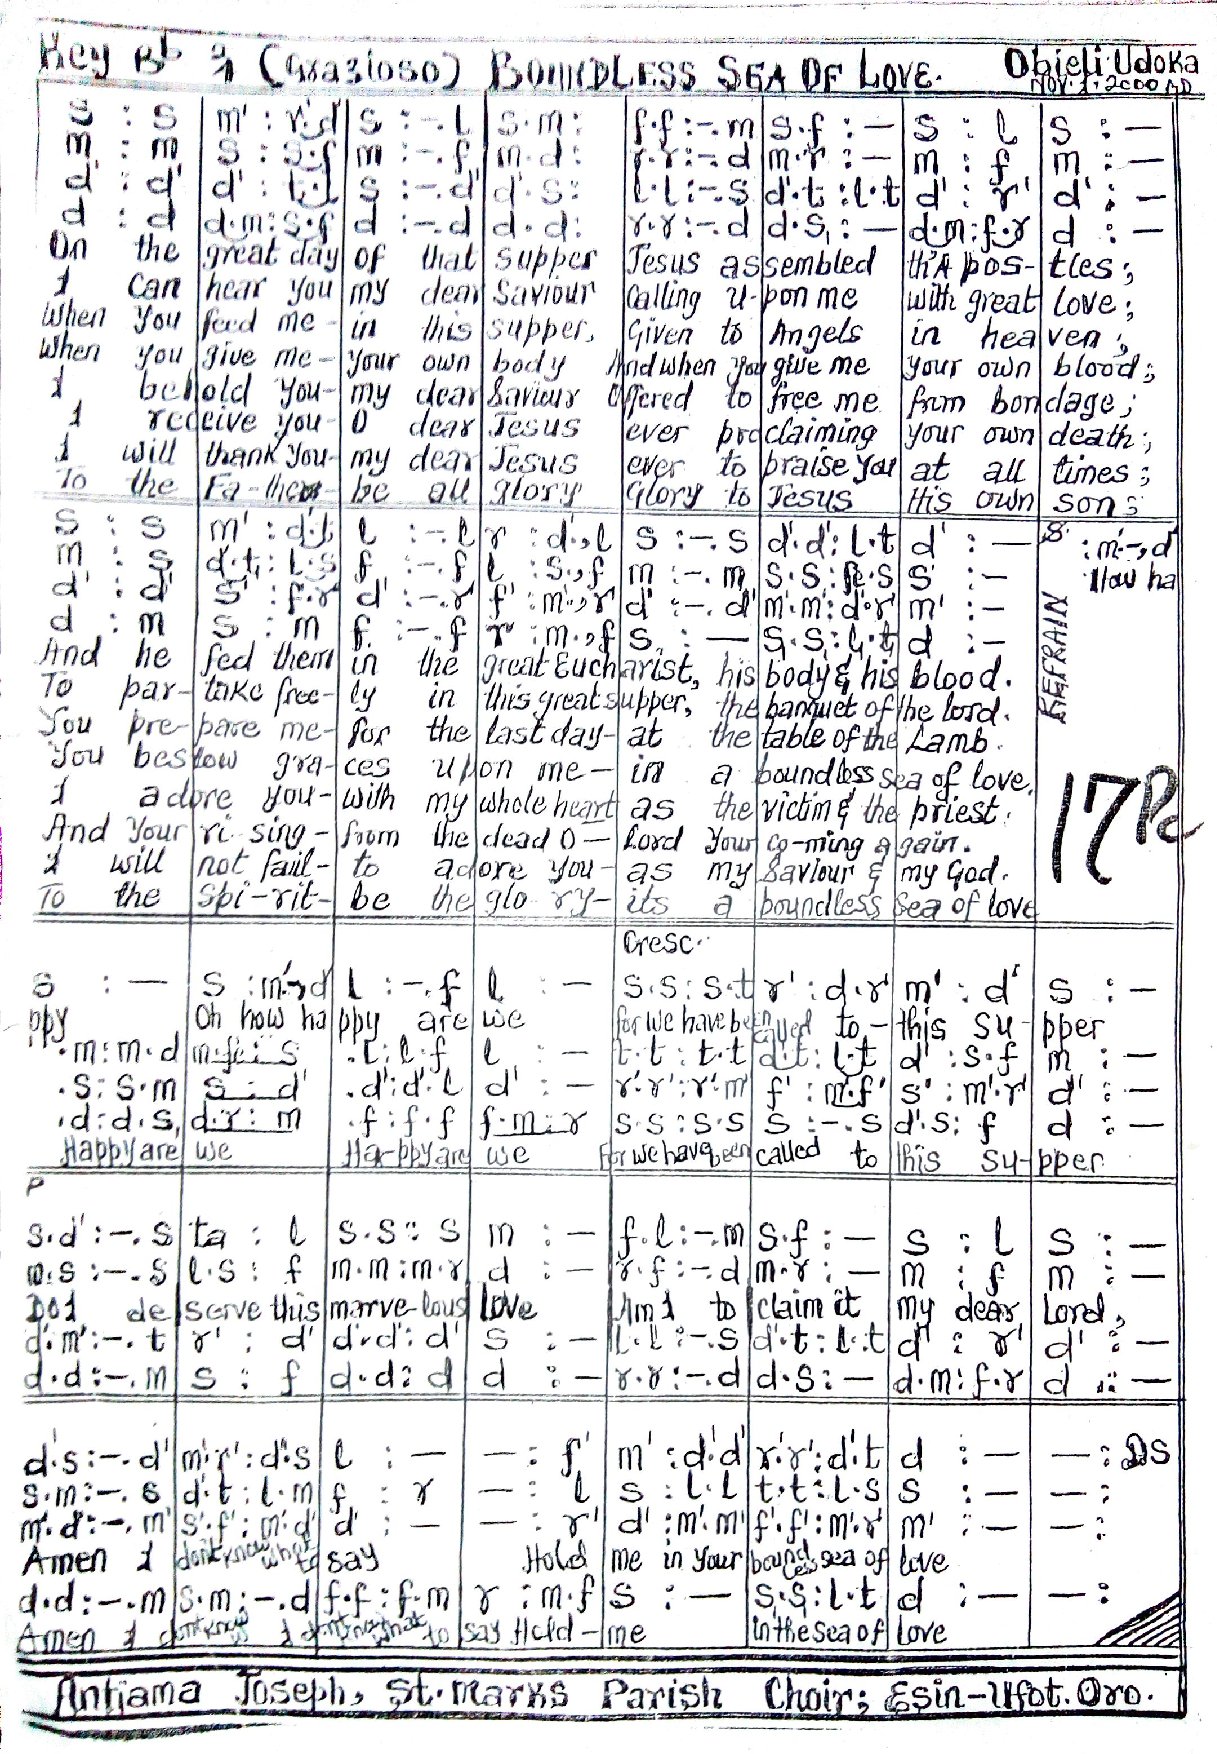 Key Bb (Grazioso) BOUNDLESS SEA OF LOVE. Obieli Udoka
Nov. 1. 2000 AD
s : s | m' : r'.d' | s : -.l | s.m : | f.f : -.m | s.f : — | s : l | s : —
m : m | s : s.f | m : -.f | m.d : | r.r : -.d | m.r : — | m : f | m : —
d' : d' | d' : t.l | s : -.d' | d'.s : | l.l : -.s | d'.t : l.t | d' : r' | d' : —
d : d | d.m : s.f | d : -.d | d.d : | r.r : -.d | d.s, : — | d.m : f.r | d : —
On the great day of that supper Jesus assembled th'Apos-tles;
I can hear you my dear Saviour calling u-pon me with great love;
When you feed me - in this supper, Given to Angels in heaven;
When you give me - your own body And when you give me your own blood;
I behold you - my dear Saviour Offered to free me from bondage;
I receive you - O dear Jesus ever proclaiming your own death;
I will thank you - my dear Jesus ever to praise you at all times;
To the Fa-ther be all glory Glory to Jesus His own son;
s : s | m' : d'.t | l : -.l | r : d'.,l | s : -.s | d'.d' : l.t | d' : — | S. : m'.-,d'
m : s | d'.t : l.s | f : -.f | l : s.,f | m : -.m | s.s : fe.s | s : — | How ha
d' : d' | s' : f'.r' | d' : -.r' | f' : m'.,r' | d' : -.d' | m'.m' : d'.r' | m' : —
d : m | s : m | f : -.f | r : m.,f | s : — | s.s : l.t | d : — | REFRAIN
And he fed them in the great Eucharist, his body & his blood.
To par-take free-ly in this great supper, the banquet of the lord.
You pre-pare me- for the last day- at the table of the Lamb.
You bestow gra-ces upon me - in a boundless sea of love.
I adore you- with my whole heart as the victim & the priest.
And Your ri-sing - from the dead O - Lord Your co-ming again.
I will not fail - to adore you - as my Saviour & my God.
To the Spi-rit- be the glo-ry- its a boundless sea of love
17
Cresc..
s : — | s : m'.-,d' | l : -.f | l : — | s.s : s.t | r' : d'.r' | m' : d' | s : —
ppy Oh how ha ppy are we for we have been called to - this su-pper
.m : m.d | m.fe : s | .l : l.f | l : — | t.t : t.t | d'.t : l.t | d' : s.f | m : —
.s : s.m | s : d' | .d' : d'.l | d' : — | r'.r' : r'.m' | f' : m'.f' | s' : m'.r' | d' : —
.d : d.s, | d.r : m | .f : f.f | f.m : r | s.s : s.s | s : -.s | d'.s : f | d : —
Happy are we Ha-ppy are we For we have been called to this su-pper
P
s.d' : -.s | ta : l | s.s : s | m : — | f.l : -.m | s.f : — | s : l | s : —
m.s : -.s | l.s : f | m.m : m.r | d : — | r.f : -.d | m.r : — | m : f | m : —
Do I de serve this marve-lous love Am I to claim it my dear Lord,
d'.m' : -.t | r' : d' | d'.d' : d' | s : — | l.l : -.s | d'.t : l.t | d' : r' | d' : —
d.d : -.m | s : f | d.d : d | d : — | r.r : -.d | d.s : — | d.m : f.r | d : —
d'.s : -.d' | m'.r' : d'.s | l : — | — : f' | m' : d'.d' | r'.r' : d'.t | d : — | — : DS
s.m : -.s | d'.t : l.m | f : r | — : l | s : l.l | t.t : l.s | s : — | — :
m'.d' : -.m' | s'.f' : m'.d' | d' : — | — : r' | d' : m'.m' | f'.f' : m'.r' | m' : — | — :
Amen I dont know what to say Hold me in your boundless sea of love
d.d : -.m | s.m : -.d | f.f : f.m | r : m.f | s : — | s.s : l.t | d : — | — :
Amen I dont know I dont know what to say Hold - me in the sea of love
Antiama Joseph, St. Marks Parish Choir; Esin-Ufot. Oro.